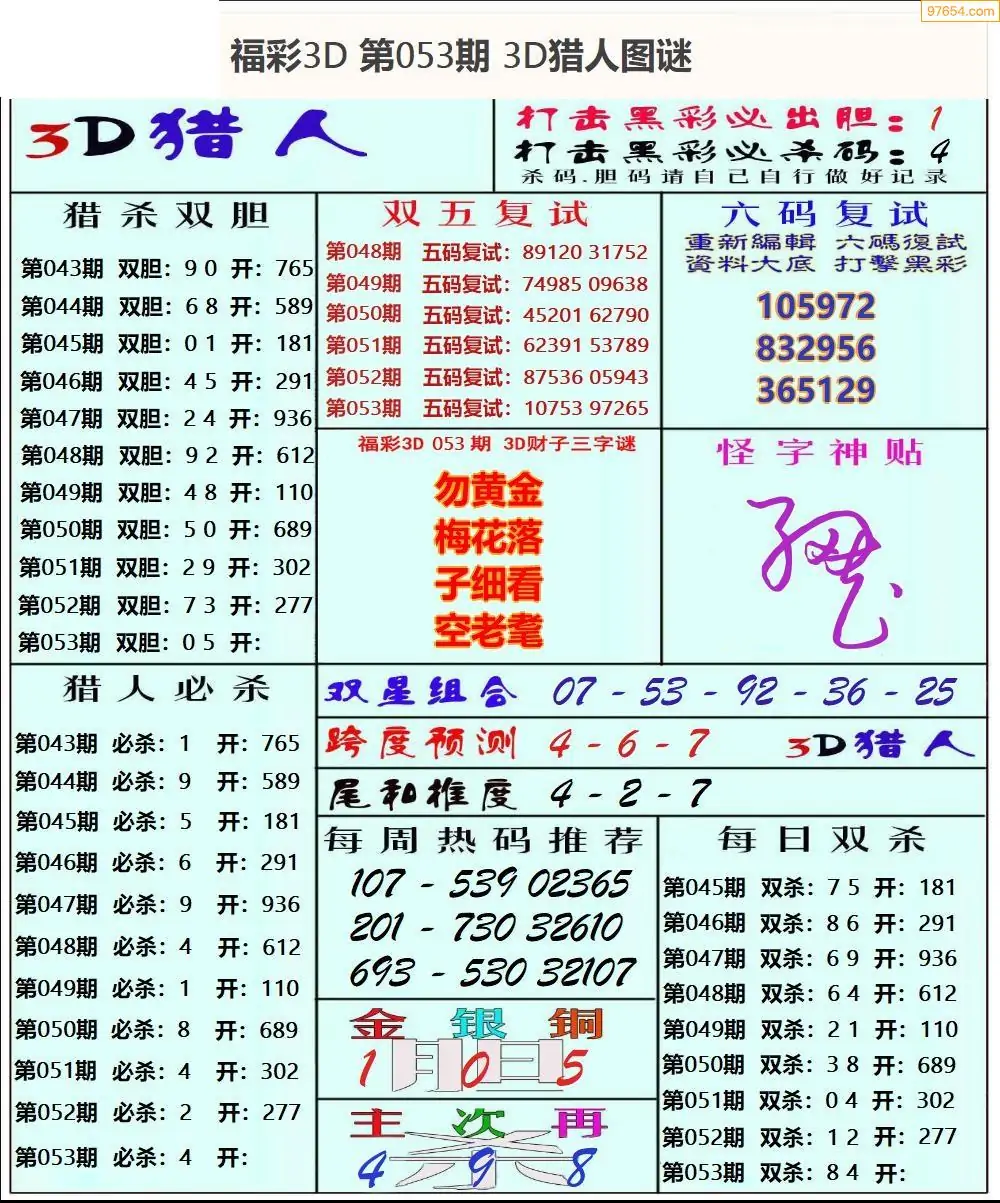 97654.com
福彩3D 第053期 3D猎人图谜
3D猎人
打击黑彩必出胆：1
打击黑彩必杀码：4
杀码.胆码请自己自行做好记录
猎杀双胆
第043期 双胆：9 0 开：765
第044期 双胆：6 8 开：589
第045期 双胆：0 1 开：181
第046期 双胆：4 5 开：291
第047期 双胆：2 4 开：936
第048期 双胆：9 2 开：612
第049期 双胆：4 8 开：110
第050期 双胆：5 0 开：689
第051期 双胆：2 9 开：302
第052期 双胆：7 3 开：277
第053期 双胆：0 5 开：
双五复试
第048期 五码复试：89120 31752
第049期 五码复试：74985 09638
第050期 五码复试：45201 62790
第051期 五码复试：62391 53789
第052期 五码复试：87536 05943
第053期 五码复试：10753 97265
六码复试
重新編輯 六碼復試
資料大底 打擊黑彩
105972
832956
365129
福彩3D 053 期 3D财子三字谜
勿黄金
梅花落
子细看
空老耄
怪字神贴
猎人必杀
第043期 必杀：1 开：765
第044期 必杀：9 开：589
第045期 必杀：5 开：181
第046期 必杀：6 开：291
第047期 必杀：9 开：936
第048期 必杀：4 开：612
第049期 必杀：1 开：110
第050期 必杀：8 开：689
第051期 必杀：4 开：302
第052期 必杀：2 开：277
第053期 必杀：4 开：
双星组合 07 - 53 - 92 - 36 - 25
跨度预测 4 - 6 - 7 3D猎人
尾和推度 4 - 2 - 7
每周热码推荐
107 - 539 02365
201 - 730 32610
693 - 530 32107
金银铜
胆
1 0 5
主次再
杀
4 9 8
每日双杀
第045期 双杀：7 5 开：181
第046期 双杀：8 6 开：291
第047期 双杀：6 9 开：936
第048期 双杀：6 4 开：612
第049期 双杀：2 1 开：110
第050期 双杀：3 8 开：689
第051期 双杀：0 4 开：302
第052期 双杀：1 2 开：277
第053期 双杀：8 4 开：